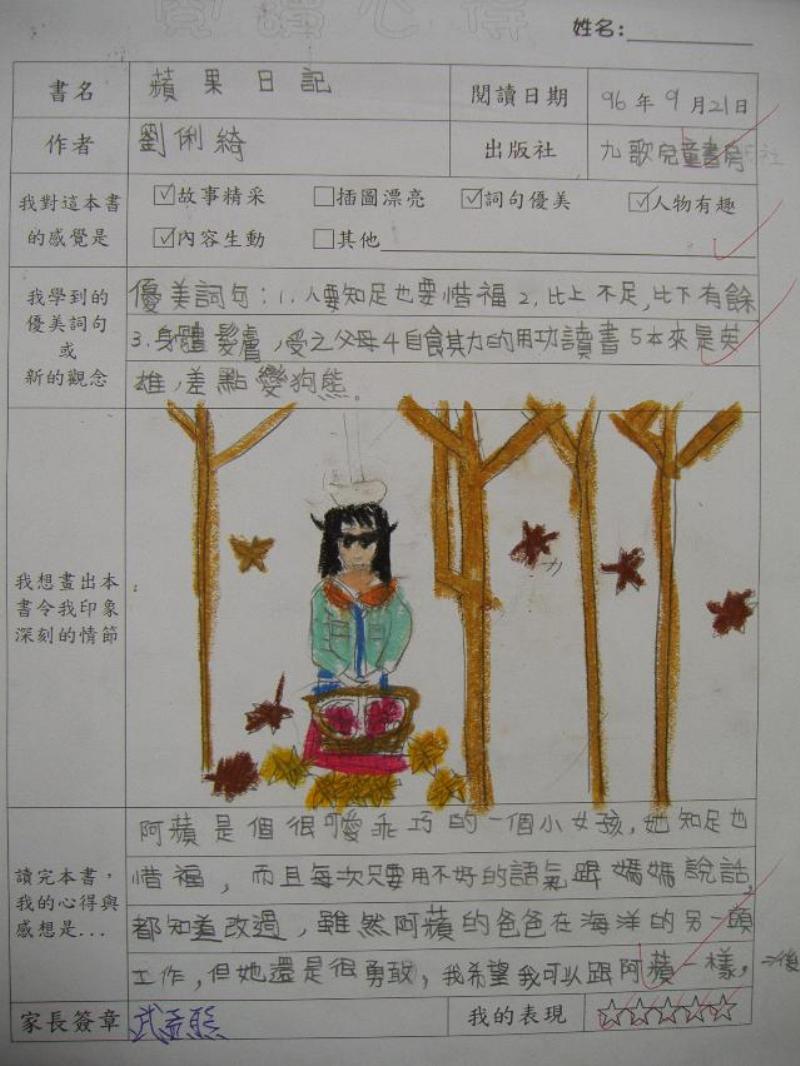 閱讀心得
姓名:
書名 蘋果日記 閱讀日期 96年9月21日
作者 劉俐綺 出版社 九歌兒童書房
我對這本書的感覺是 ☑故事精采 □插圖漂亮 ☑詞句優美 ☑人物有趣
☑內容生動 □其他
我學到的
優美詞句
或
新的觀念
優美詞句:1.人要知足也要惜福2.比上不足,比下有餘
3.身體髮膚,受之父母4自食其力的用功讀書5本來是英
雄,差點變狗熊。
我想畫出本
書令我印象
深刻的情節
讀完本書,
我的心得與
感想是...
阿蘋是個很可愛乖巧的一個小女孩,她知足也
惜福,而且每次只要用不好的語氣跟媽媽說話,
都知道改過,雖然阿蘋的爸爸在海洋的另一頭
工作,但她還是很勇敢,我希望我可以跟阿蘋一樣,→後
家長簽章 我的表現 ☆☆☆☆☆